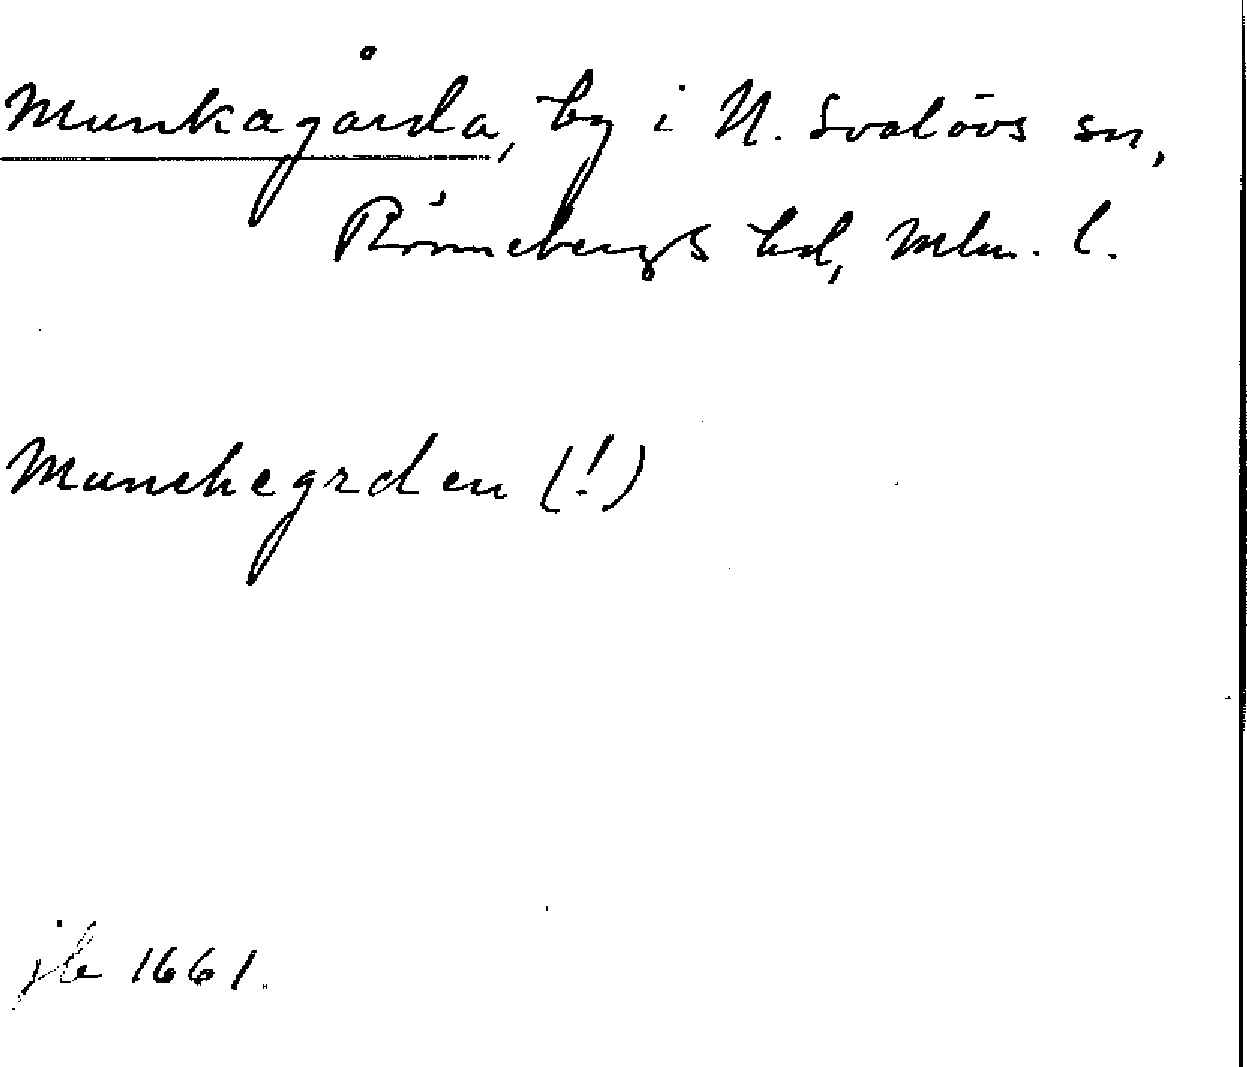 Munkagårda, by i N. Svalövs sn,
Rönnebergs hd, Mlm. l.
Munchegrden (!)
jb 1661.